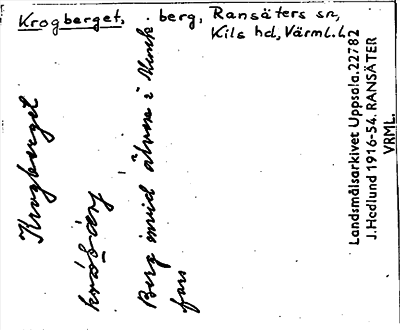 Krogberget, . berg, Ransäters sn,
Kils hd, Värml. l.
Krogberget
Berg invid älven i Munk
fors
Landsmålsarkivet Uppsala. 22782
J. Hedlund 1916-54. RANSÄTER
VRML.